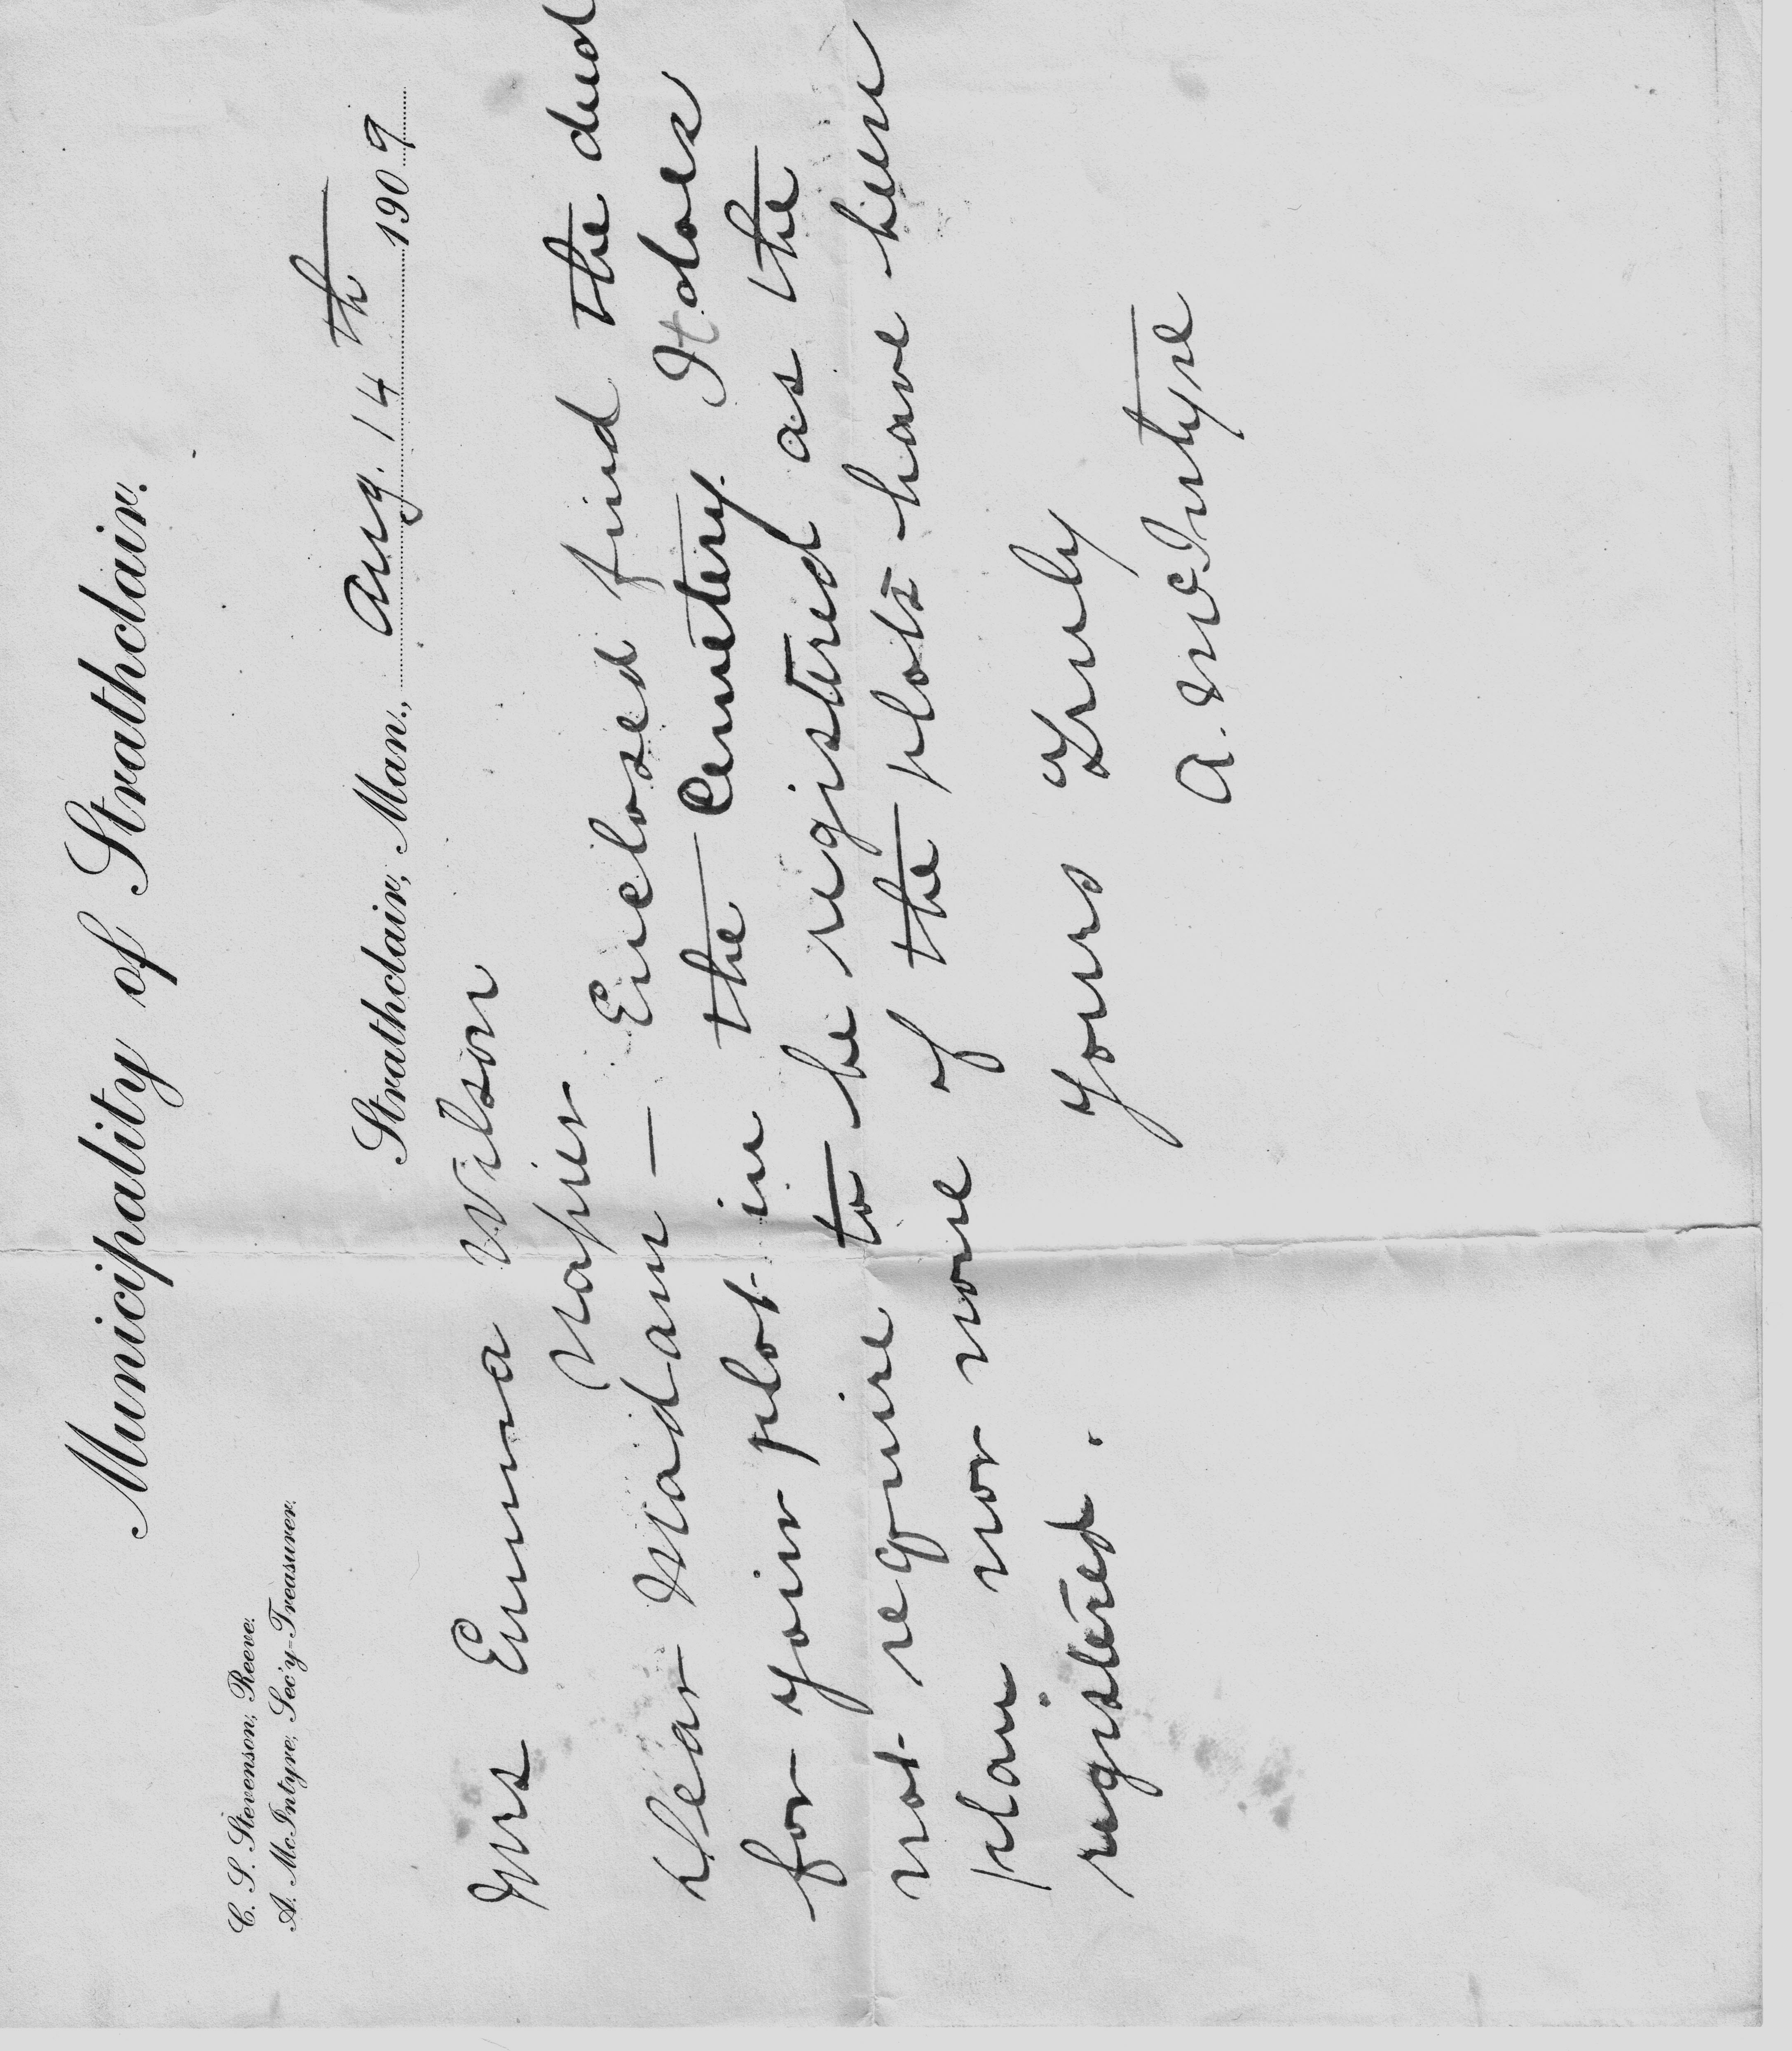 Municipality of Strathclair.
C. S. Stevenson, Reeve.
A. McIntyre, Sec'y-Treasurer.
Strathclair, Man., Aug. 14th 1909
Mrs Emma Wilson
Napier
Dear Madam — Enclosed find the deed
for your plot in the Cemetery. It does
not require to be registered as the
plan nor none of the plots have been
registered.
Yours Truly
A. McIntyre